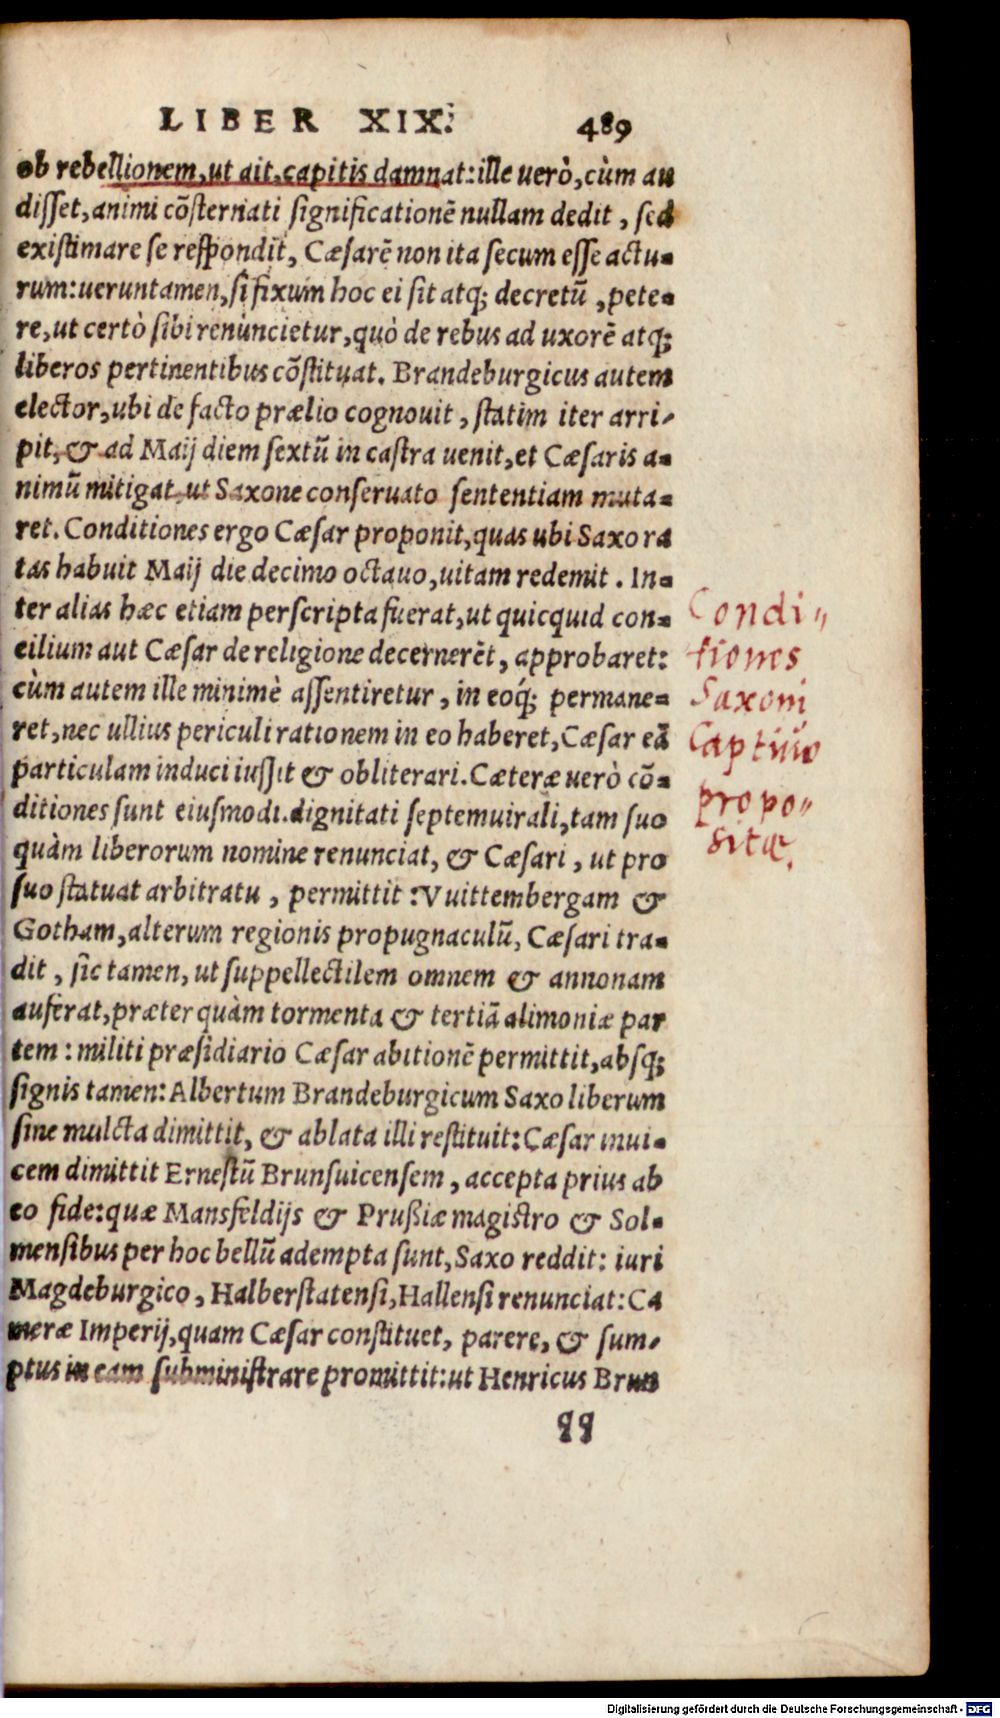 LIBER XIX. 489
ob rebellionem, ut ait, capitis damnat: ille uerò, cùm au
disset, animi cõsternati significationẽ nullam dedit, sed
existimare se respondit, Cæsarẽ non ita secum esse actu-
rum: ueruntamen, si fixum hoc ei sit atq; decretũ, pete-
re, ut certò sibi renuncietur, quò de rebus ad uxorẽ atq;
liberos pertinentibus cõstituat. Brandeburgicus autem
elector, ubi de facto prælio cognouit, statim iter arri-
pit, & ad Maij diem sextũ in castra uenit, et Cæsaris a-
nimũ mitigat, ut Saxone conseruato sententiam muta-
ret. Conditiones ergo Cæsar proponit, quas ubi Saxo ra
tas habuit Maij die decimo octauo, uitam redemit. In-
ter alias hæc etiam perscripta fuerat, ut quicquid con-
cilium aut Cæsar de religione decernerẽt, approbaret:
cùm autem ille minimè assentiretur, in eoq́; permane-
ret, nec ullius periculi rationem in eo haberet, Cæsar eã
particulam induci iussit & obliterari. Cæteræ uerò cõ-
ditiones sunt eiusmodi. dignitati septemuirali, tam suo
quàm liberorum nomine renunciat, & Cæsari, ut pro
suo statuat arbitratu, permittit: Vuittembergam &
Gotham, alterum regionis propugnaculũ, Cæsari tra-
dit, sic tamen, ut suppellectilem omnem & annonam
auferat, præter quàm tormenta & tertiã alimoniæ par
tem: militi præsidiario Cæsar abitionẽ permittit, absq;
signis tamen: Albertum Brandeburgicum Saxo liberum
sine mulcta dimittit, & ablata illi restituit: Cæsar inui-
cem dimittit Ernestũ Brunsuicensem, accepta prius ab
eo fide: quæ Mansfeldijs & Prußiæ magistro & Sol-
mensibus per hoc bellũ adempta sunt, Saxo reddit: iuri
Magdeburgico, Halberstatensi, Hallensi renunciat: Ca
meræ Imperij, quam Cæsar constituet, parere, & sum-
ptus in eam subministrare promittit: ut Henricus Brun
qq
Condi-
tiones
Saxoni
Captiuo
propo-
sitæ.
Digitalisierung gefördert durch die Deutsche Forschungsgemeinschaft - DFG